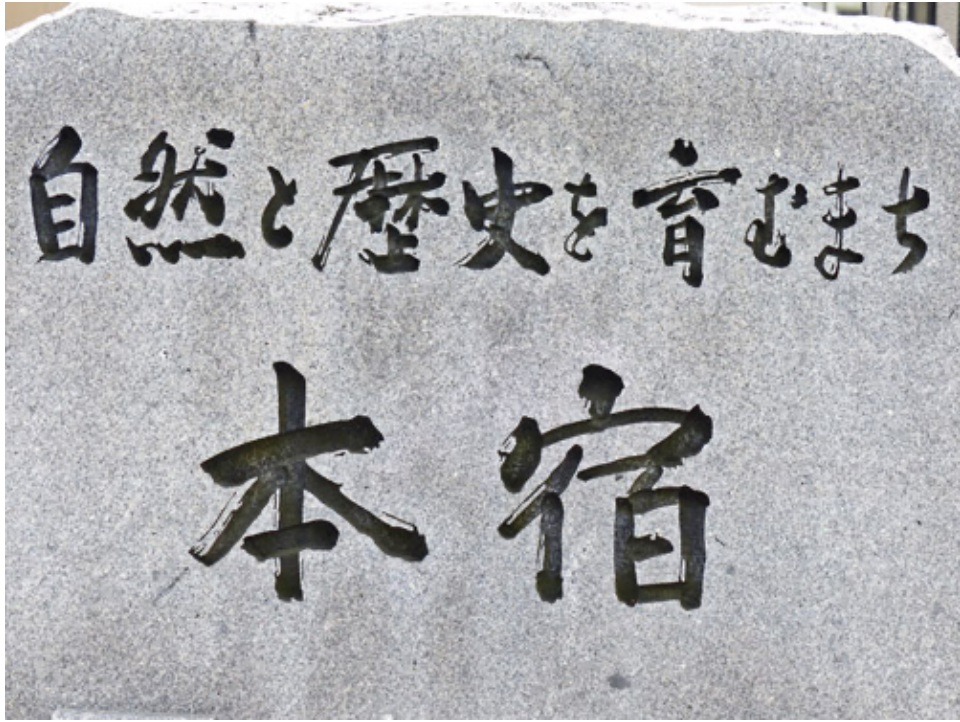 自然と歴史を育むまち
本宿